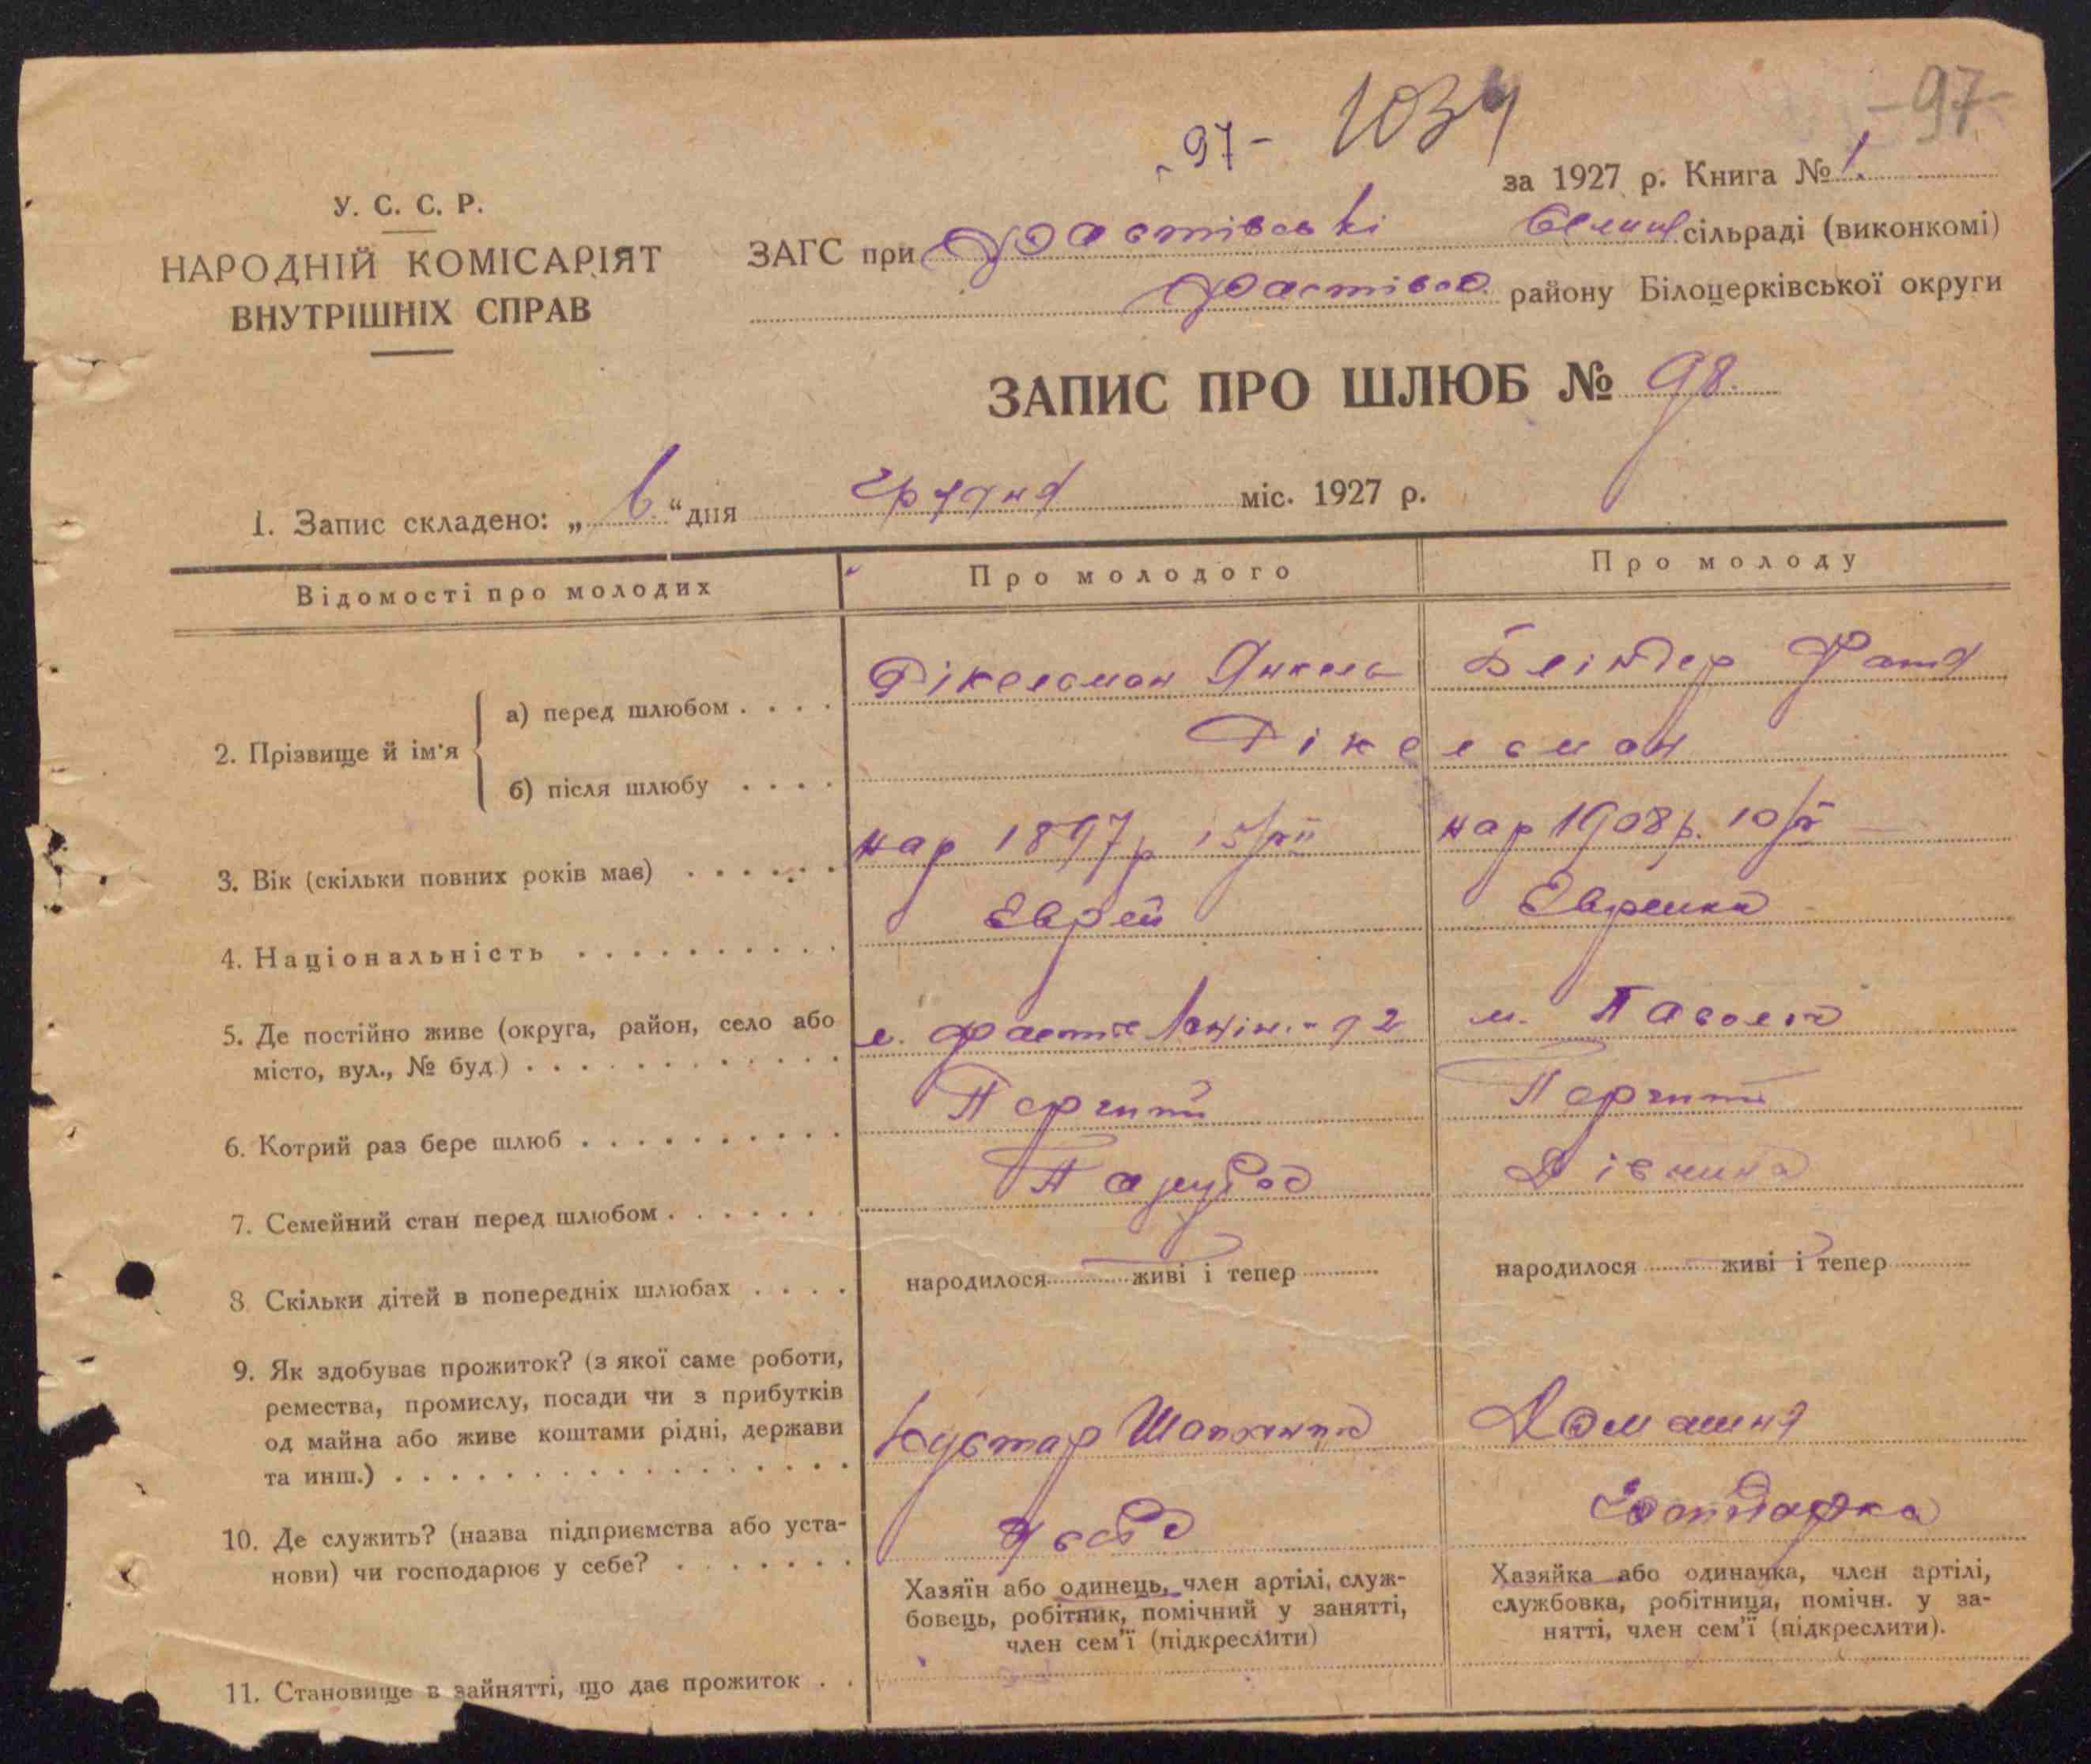 -97-
1034
-97-
за 1927 р. Книга № 1.
У. С. С. Р.
НАРОДНІЙ КОМІСАРІЯТ
ВНУТРІШНІХ СПРАВ
ЗАГС при Фастівські сільраді (виконкомі)
Фастівсь. району Білоцерківської округи
ЗАПИС ПРО ШЛЮБ № 98.
1. Запис складено: „ 6. “ дня грудня міс. 1927 р.
Відомості про молодих
Про молодого
Про молоду
2. Прізвище й ім'я
а) перед шлюбом . . . .
Дікельман Янкель
Бліндер Фаня
б) після шлюбу . . . .
Дікельман
3. Вік (скільки повних років має) . . . . . .
нар 1897 р 15/VII
нар 1908 р. 10/V
4. Національність . . . . . . . . . .
Єврей
Єврейка
5. Де постійно живе (округа, район, село або
місто, вул., № буд.) . . . . . . . . . . .
м. Паволоч
6. Котрий раз бере шлюб . . . . . . . . . .
Перший
Перший
7. Семейний стан перед шлюбом . . . . . . .
Парубок
Дівчина
8. Скільки дітей в попередніх шлюбах . . . .
народилося живі і тепер
народилося живі і тепер
9. Як здобуває прожиток? (з якої саме роботи,
ремества, промислу, посади чи з прибутків
од майна або живе коштами рідні, держави
та инш.) . . . . . . . . . . . . . . . . .
Кустар
Домашня
10. Де служить? (назва підприємства або уста-
нови) чи господарює у себе? . . . . . . .
У себе
Господарка
Хазяїн або одинець, член артілі, служ-
бовець, робітник, помічний у занятті,
член сем'ї (підкреслити)
Хазяйка або одиначка, член артілі,
службовка, робітниця, помічн. у за-
нятті, член сем'ї (підкреслити).
11. Становище в зайнятті, що дає прожиток . .